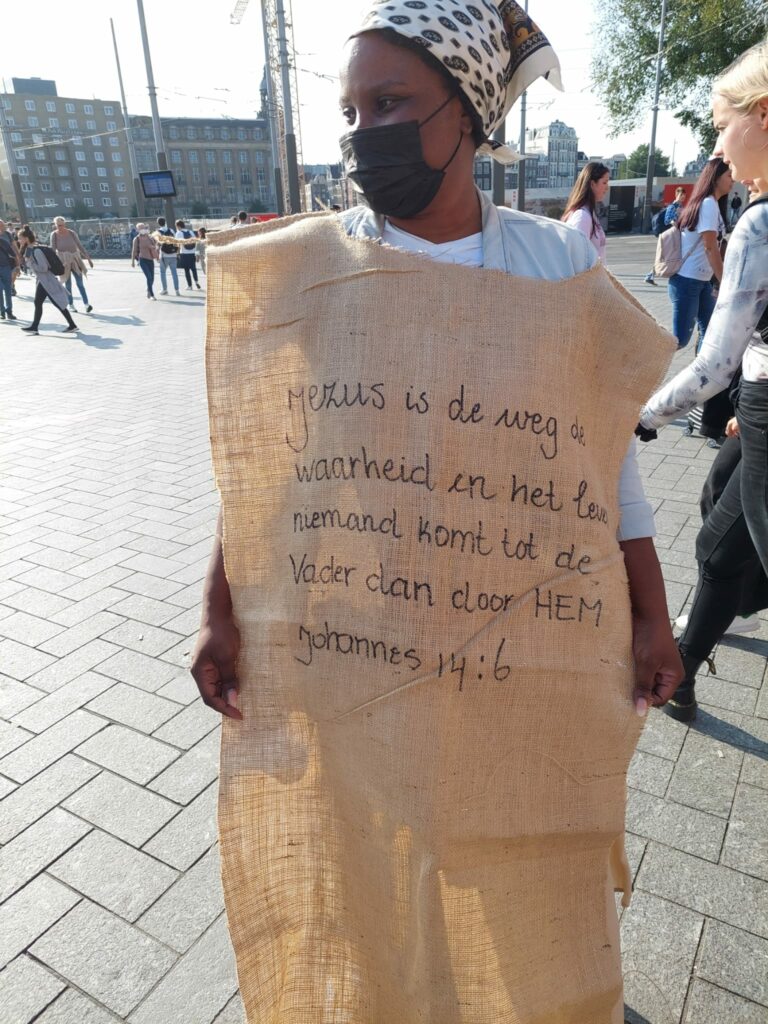 Jezus is de weg de
waarheid en het leve
niemand komt tot de
Vader dan door HEM
Johannes 14:6